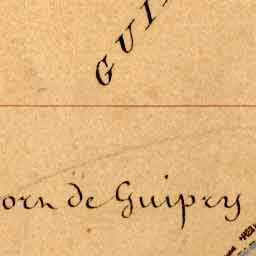 GUI
orn de Guipry